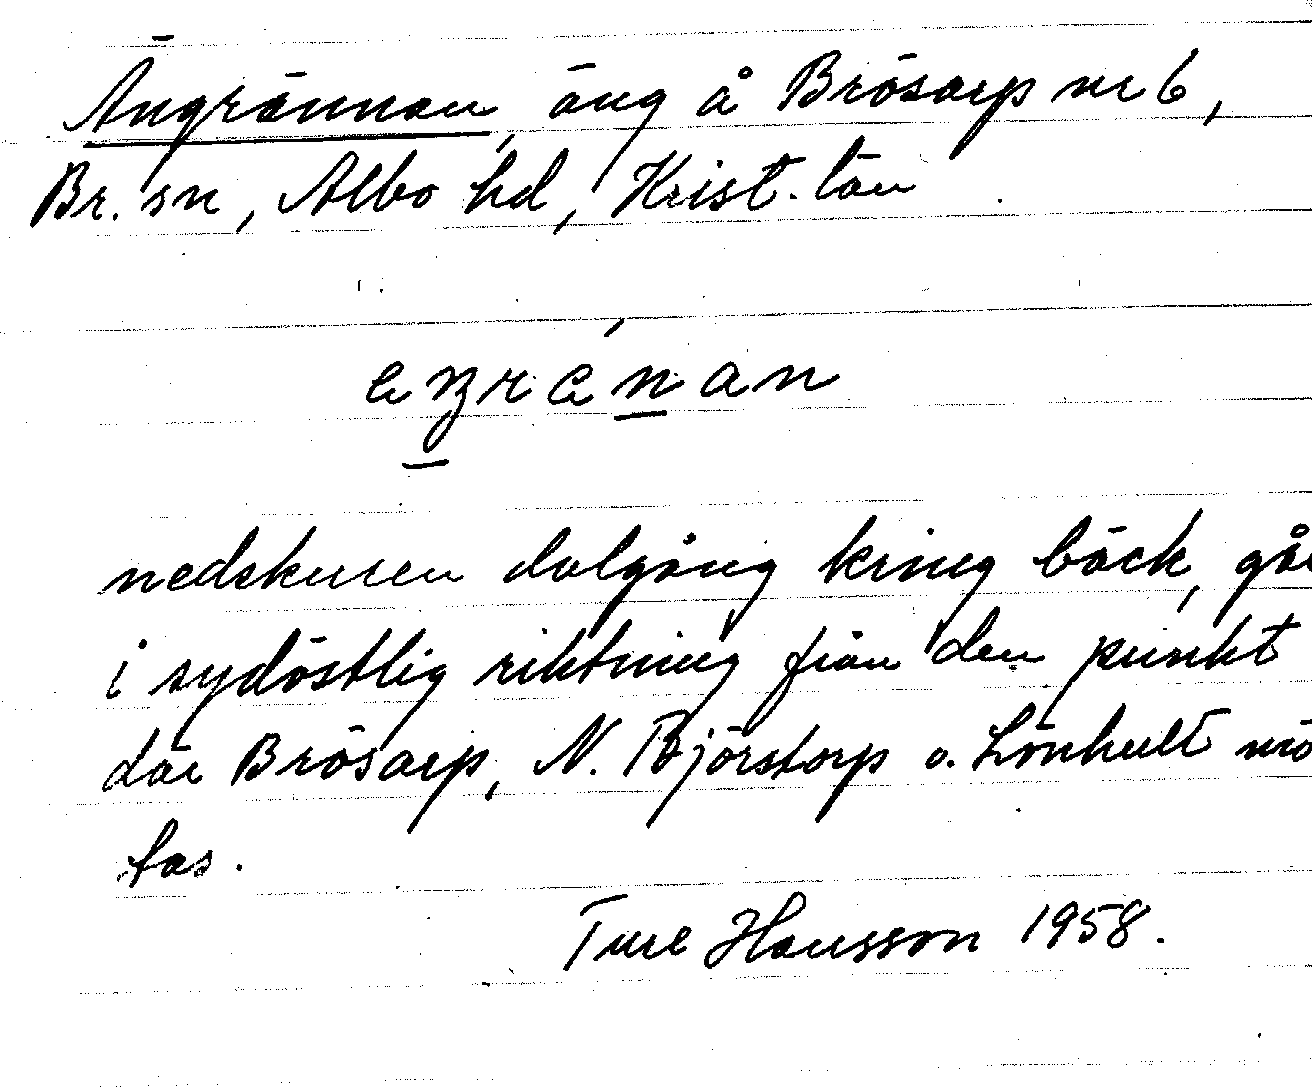 Ängrännan, äng å Brösarp nr 6,
Br. sn, Albo hd, Krist. län
nedskuren dalgång kring bäck, går
i sydöstlig riktning från den punkt
där Brösarp, N. Björstorp o. Lönhult mö
tas.
Ture Hansson 1958.